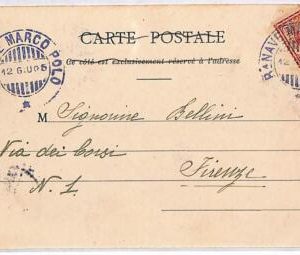 MARCO POLO
12 GIU 05
CARTE POSTALE
Ce côté est exclusivement réservé à l'adresse
R. NAVE
12
M Signorine Bellini
Via dei Corsi
N. 1.
Firenze